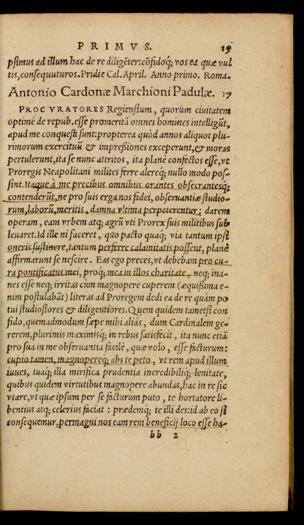 PRIMVS. 19
psimus ad illum hac de re diligēter: cōfidoq; vos ea quæ vul
tis, consequuturos. Pridie Cal. April. Anno primo. Roma.
Antonio Cardonæ Marchioni Padulæ. 17
PROCVRATORES Regiensium, quorum ciuitatem
optimè de repub. esse promeritā omnes homines intelligūt,
apud me conquesti sunt: propterea quòd annos aliquot plu-
rimorum exercituū & impresiones exceperunt, & moras
pertulerunt, ita se nunc attritos, ita planè confectos esse, vt
Proregis Neapolitani milites ferre alerēq; nullo modo pos-
sint. Itaque à me precibus omnibus orantes obsecrantesq;
contenderūt, ne pro suis erga nos fidei, obseruantiæ studio-
rum, laborū, meritis, damna vltima perpeterentur: darem
operam, eam vrbem atq; agrū vti Prorex suis militibus sub
leuaret. Id ille ni faceret, quo pacto quaq; via tantum ipsi
oneris sustinere, tantum perferre calamitatis possent, planè
affirmarunt se nescire. Eas ego preces, vt debebam pro cu-
ra pontificatus mei, proq; mea in illos charitate, neq; ina-
nes esse neq; irritas cùm magnopere cuperem (æquissima e-
nim postulabāt) literas ad Proregem dedi ea de re quàm po
tui studiosiores & diligentiores. Quem quidem tametsi con
fido, quemadmodum sæpe mihi aliàs, dum Cardinalem ge-
rerem, plurimis maximisq; in rebus satisfecit, ita nunc etiā
pro sua in me obseruantia facilè, quæ volo, esse facturum:
cupio tamen, magnopereq; abs te peto, vt rem apud illum
iuues, tuaq; illa mirifica prudentia incredibiliq; lenitate,
quibus quidem virtutibus magnopere abundas, hac in re sic
vtare, vt quæ ipsum per se facturum puto, te hortatore li-
bentius atq; celerius faciat: prædemq; te illi des: id ab eo si
consequemur, permagni nos eam rem beneficij loco esse ha-
bb 2